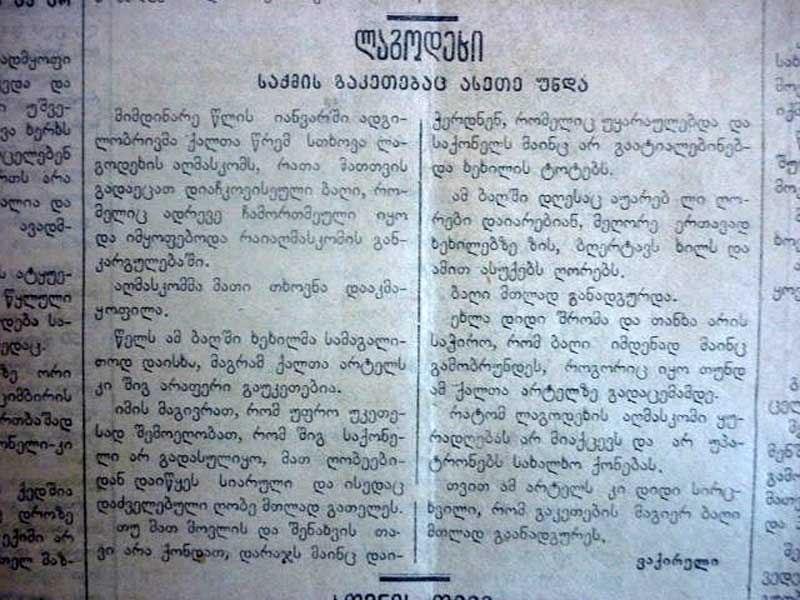 ლაგოდეხი
საქმის გაკეთებაც ასეთი უნდა
მიმდინარე წლის იანვარში ადგი-
ლობრივმა ქალთა წრემ სთხოვა ლა-
გოდეხის აღმასკომს, რათა მათთვის
გადაეცათ დიაჩკოვისეული ბაღი, რო-
მელიც ადრევე ჩამორთმეული იყო
და იმყოფებოდა რაიაღმასკომის გან-
კარგულებაში.
აღმასკომმა მათი თხოვნა დააკმა-
ყოფილა.
წელს ამ ბაღში ხეხილმა სამაგალი-
თოდ დაისხა, მაგრამ ქალთა არტელს
კი შიგ არაფერი გაუკეთებია.
იმის მაგივრათ, რომ უფრო უკეთე-
სად შემოეღობათ, რომ შიგ საქონე-
ლი არ გადასულიყო, მათ ღობეები-
დან დაიწყეს სიარული და ისედაც
დაძველებული ღობე მთლად გათელეს.
თუ მათ მოვლის და შენახვის თა-
ვი არა ქონდათ, დარაჯს მაინც დაი-
ჭერდნენ, რომელიც უყარაულებდა და
საქონელს მაინც არ გაატიალებინებ-
და ხეხილის ტოტებს.
ამ ბაღში დღესაც აუარებ ლი ღო-
რები დაიარებიან, მეღორე ერთავად
ხეხილებზე ზის, ბღერტავს ხილს და
ამით ასუქებს ღორებს.
ბაღი მთლად განადგურდა.
ეხლა დიდი შრომა და თანხა არის
საჭირო, რომ ბაღი იმდენად მაინც
გამობრუნდეს, როგორიც იყო თუნდ
ამ ქალთა არტელზე გადაცემამდე.
რატომ ლაგოდეხის აღმასკომი ყუ-
რადღებას არ მიაქცევს და არ უპა-
ტრონებს სახალხო ქონებას.
თვით ამ არტელს კი დიდი სირც-
ხვილი, რომ გაკეთების მაგიერ ბაღი
მთლად გაანადგურეს.
ვაქირელი